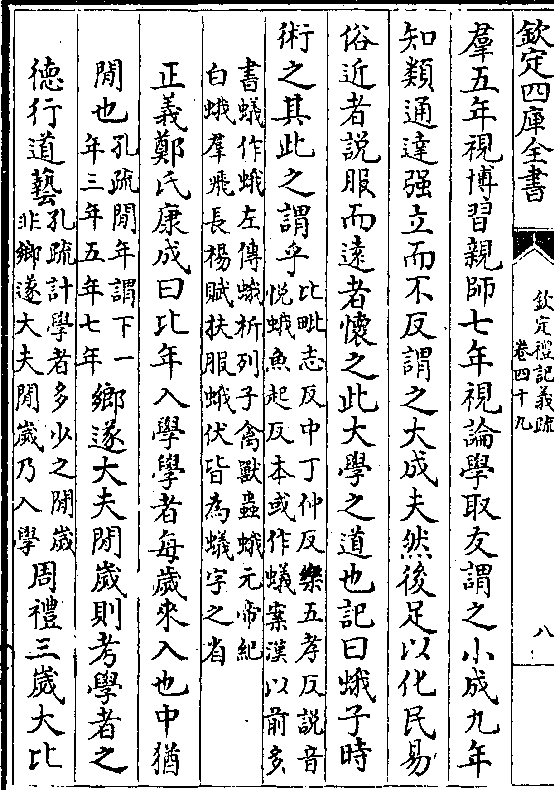 欽定四庫全書
欽定禮記義疏
卷四十九
八
羣五年視博習親師七年視論學取友謂之小成九年
知類通達强立而不反謂之大成夫然後足以化民易
俗近者説服而遠者懷之此大學之道也記曰蛾子時
術之其此之謂乎
比毗志反中丁仲反樂五孝反説音
悦蛾魚起反本或作蟻案漢以前多
書蟻作蛾左傳蛾析列子禽獸蟲蛾元帝紀
白蛾羣飛長楊賦扶服蛾伏皆為蟻字之省
正義鄭氏康成曰比年入學學者每歲來入也中猶
閒也
孔疏閒年謂下一
年三年五年七年
鄉遂大夫閒歲則考學者之
德行道藝
孔疏計學者多少之閒歲
非鄉遂大夫閒歲乃入學
周禮三歲大比